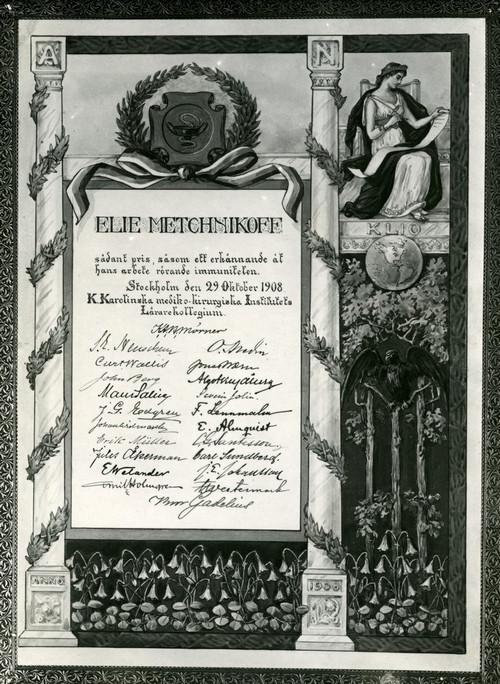 A N
KLIO
ELIE METCHNIKOFF
sådant pris, såsom ett erkännande åt
hans arbete rörande immuniteten.
Stockholm den 29 Oktober 1908
K. Karolinska mediko-kirurgiska Institutets
Lärarekollegium.
Mörner
Curt Wallis
John Berg
E. Almquist
Erik Müller
Jules Åkerman Carl Sundberg
E Welander J. E. Johansson
Emil Holmgren
Gadelius
ANNO 1908